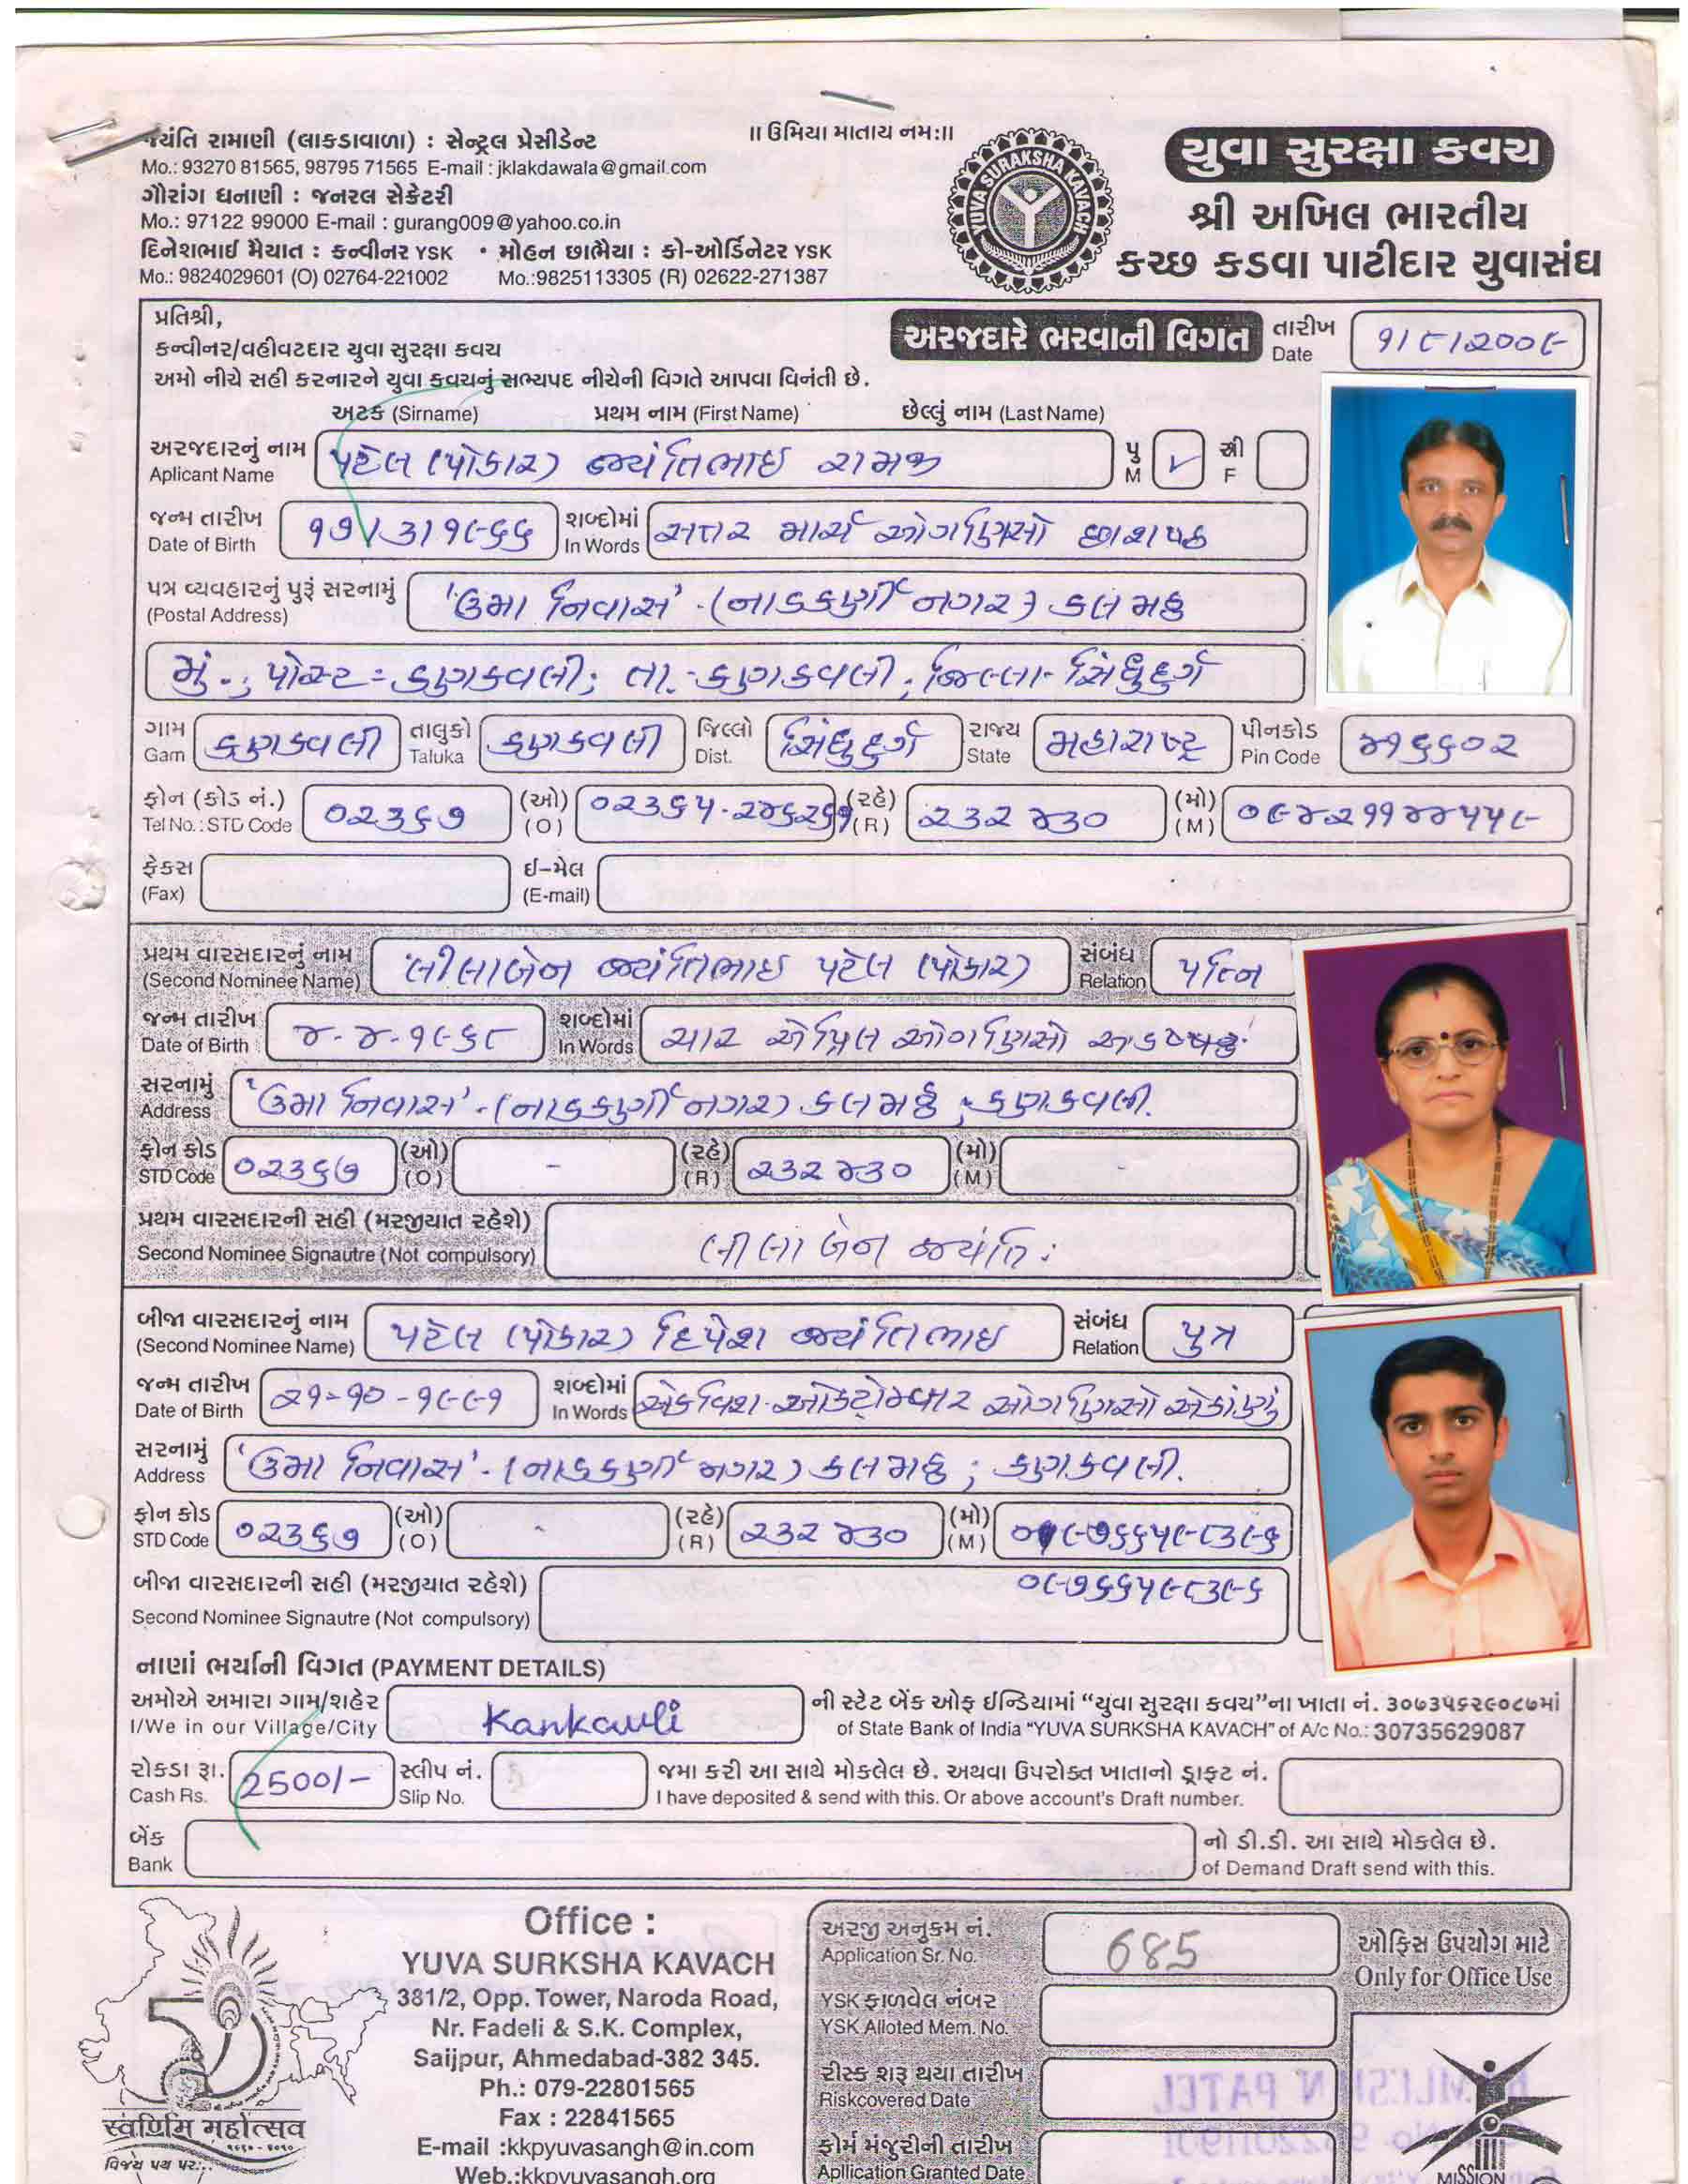 જયંતિ રામાણી (લાકડાવાળા) : સેન્ટ્રલ પ્રેસીડેન્ટ
Mo.: 93270 81565, 98795 71565 E-mail : jklakdawala@gmail.com
ગૌરાંગ ધનાણી : જનરલ સેક્રેટરી
Mo.: 97122 99000 E-mail : gurang009@yahoo.co.in
દિનેશભાઈ મૈયાત : કન્વીનર YSK • મોહન છાભૈયા : કો-ઓર્ડિનેટર YSK
Mo.: 9824029601 (O) 02764-221002 Mo.:9825113305 (R) 02622-271387
॥ ઉમિયા માતાય નમઃ॥
YUVA SURAKSHA KAVACH
યુવા સુરક્ષા કવચ
શ્રી અખિલ ભારતીય
કચ્છ કડવા પાટીદાર યુવાસંઘ
પ્રતિશ્રી,
અરજદારે ભરવાની વિગત
તારીખ Date ૧/૮/૨૦૦૯
કન્વીનર/વહીવટદાર યુવા સુરક્ષા કવચ
અમો નીચે સહી કરનારને યુવા કવચનું સભ્યપદ નીચેની વિગતે આપવા વિનંતી છે.
અટક (Sirname) પ્રથમ નામ (First Name) છેલ્લું નામ (Last Name)
અરજદારનું નામ Aplicant Name પટેલ (પોકાર) જ્યંતિભાઇ રામજી પુ M ✓ સ્રી F
જન્મ તારીખ Date of Birth ૧૭/૩/૧૯૬૬ શબ્દોમાં In Words સત્તર માર્ચ ઓગણિસો છાશષઠ
પત્ર વ્યવહારનું પુરૂં સરનામું (Postal Address) 'ઉમા નિવાસ' - (નાડકર્ણી નગર) કલમઠ
મું. પોસ્ટ = કણકવલી; તા.-કણકવલી; જિલ્લા-સિંધુદુર્ગ
ગામ Gam કણકવલી તાલુકો Taluka કણકવલી જિલ્લો Dist. સિંધુદુર્ગ રાજ્ય State મહારાષ્ટ્ર પીનકોડ Pin Code ૪૧૬૬૦૨
ફોન (કોડ નં.) Tel No.: STD Code ૦૨૩૬૭ (ઓ) (O) ૦૨૩૬૫-૨૪૬૨૬૧ (રહે) (R) ૨૩૨ ૪૩૦ (મો) (M) ૦૯૪૨૧૧૪૪૫૫૯
ફેકસ (Fax) ઈ-મેલ (E-mail)
પ્રથમ વારસદારનું નામ (Second Nominee Name) લીલાબેન જ્યંતિભાઇ પટેલ (પોકાર) સંબંધ Relation પત્નિ
જન્મ તારીખ Date of Birth ૪-૪-૧૯૬૮ શબ્દોમાં In Words ચાર એપ્રિલ ઓગણિસો
સરનામું Address 'ઉમા નિવાસ' - (નાડકર્ણી નગર) કલમઠ ; કણકવલી.
ફોન કોડ STD Code ૦૨૩૬૭ (ઓ) (O) - (રહે) (R) ૨૩૨ ૪૩૦ (મો) (M) -
પ્રથમ વારસદારની સહી (મરજીયાત રહેશે)
Second Nominee Signautre (Not compulsory) લીલાબેન જ્યંતિ.
બીજા વારસદારનું નામ (Second Nominee Name) પટેલ (પોકાર) દિપેશ જ્યંતિભાઇ સંબંધ Relation પુત્ર
જન્મ તારીખ Date of Birth ૨૧-૧૦-૧૯૯૧ શબ્દોમાં In Words એકવિશ ઓક્ટોમ્બર ઓગણિસો એકાણું
સરનામું Address 'ઉમા નિવાસ' - (નાડકર્ણી નગર) કલમઠ ; કણકવલી.
ફોન કોડ STD Code ૦૨૩૬૭ (ઓ) (O) - (રહે) (R) ૨૩૨ ૪૩૦ (મો) (M) ૦૯૭૬૬૫૯૮૩૯૬
બીજા વારસદારની સહી (મરજીયાત રહેશે) ૦૯૭૬૬૫૯૮૩૯૬
Second Nominee Signautre (Not compulsory)
નાણાં ભર્યાની વિગત (PAYMENT DETAILS)
અમોએ અમારા ગામ/શહેર I/We in our Village/City Kankauli ની સ્ટેટ બેંક ઓફ ઈન્ડિયામાં "યુવા સુરક્ષા કવચ"ના ખાતા નં. ૩૦૭૩૫૬૨૯૦૮૭માં
of State Bank of India "YUVA SURKSHA KAVACH" of A/c No.: 30735629087
રોકડા રૂા. Cash Rs. 2500/- સ્લીપ નં. Slip No. જમા કરી આ સાથે મોકલેલ છે. અથવા ઉપરોક્ત ખાતાનો ડ્રાફ્ટ નં.
I have deposited & send with this. Or above account's Draft number.
બેંક Bank નો ડી.ડી. આ સાથે મોકલેલ છે.
of Demand Draft send with this.
50
स्वर्णिम महोत्सव
વિજય પથ પર...
Office :
YUVA SURKSHA KAVACH
381/2, Opp. Tower, Naroda Road,
Nr. Fadeli & S.K. Complex,
Saijpur, Ahmedabad-382 345.
Ph.: 079-22801565
Fax : 22841565
E-mail :kkpyuvasangh@in.com
Web.:kkpyuvasangh.org
અરજી અનુક્રમ નં. Application Sr. No. 685
ઓફિસ ઉપયોગ માટે
Only for Office Use
YSK ફાળવેલ નંબર
YSK Alloted Mem. No.
રીસ્ક શરૂ થયા તારીખ
Riskcovered Date
ફોર્મ મંજુરીની તારીખ
Apllication Granted Date
MISSION